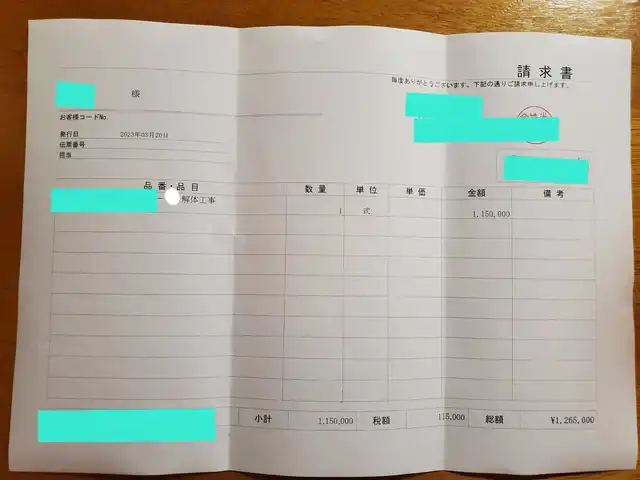 請求書
毎度ありがとうございます。下記の通りご請求申し上げます。
様
お客様コードNo.
発行日 2023年03月20日
伝票番号
担当
品番・品目 数量 単位 単価 金額 備考
解体工事
1 式 1,150,000
小計 1,150,000 税額 115,000 総額 ¥1,265,000